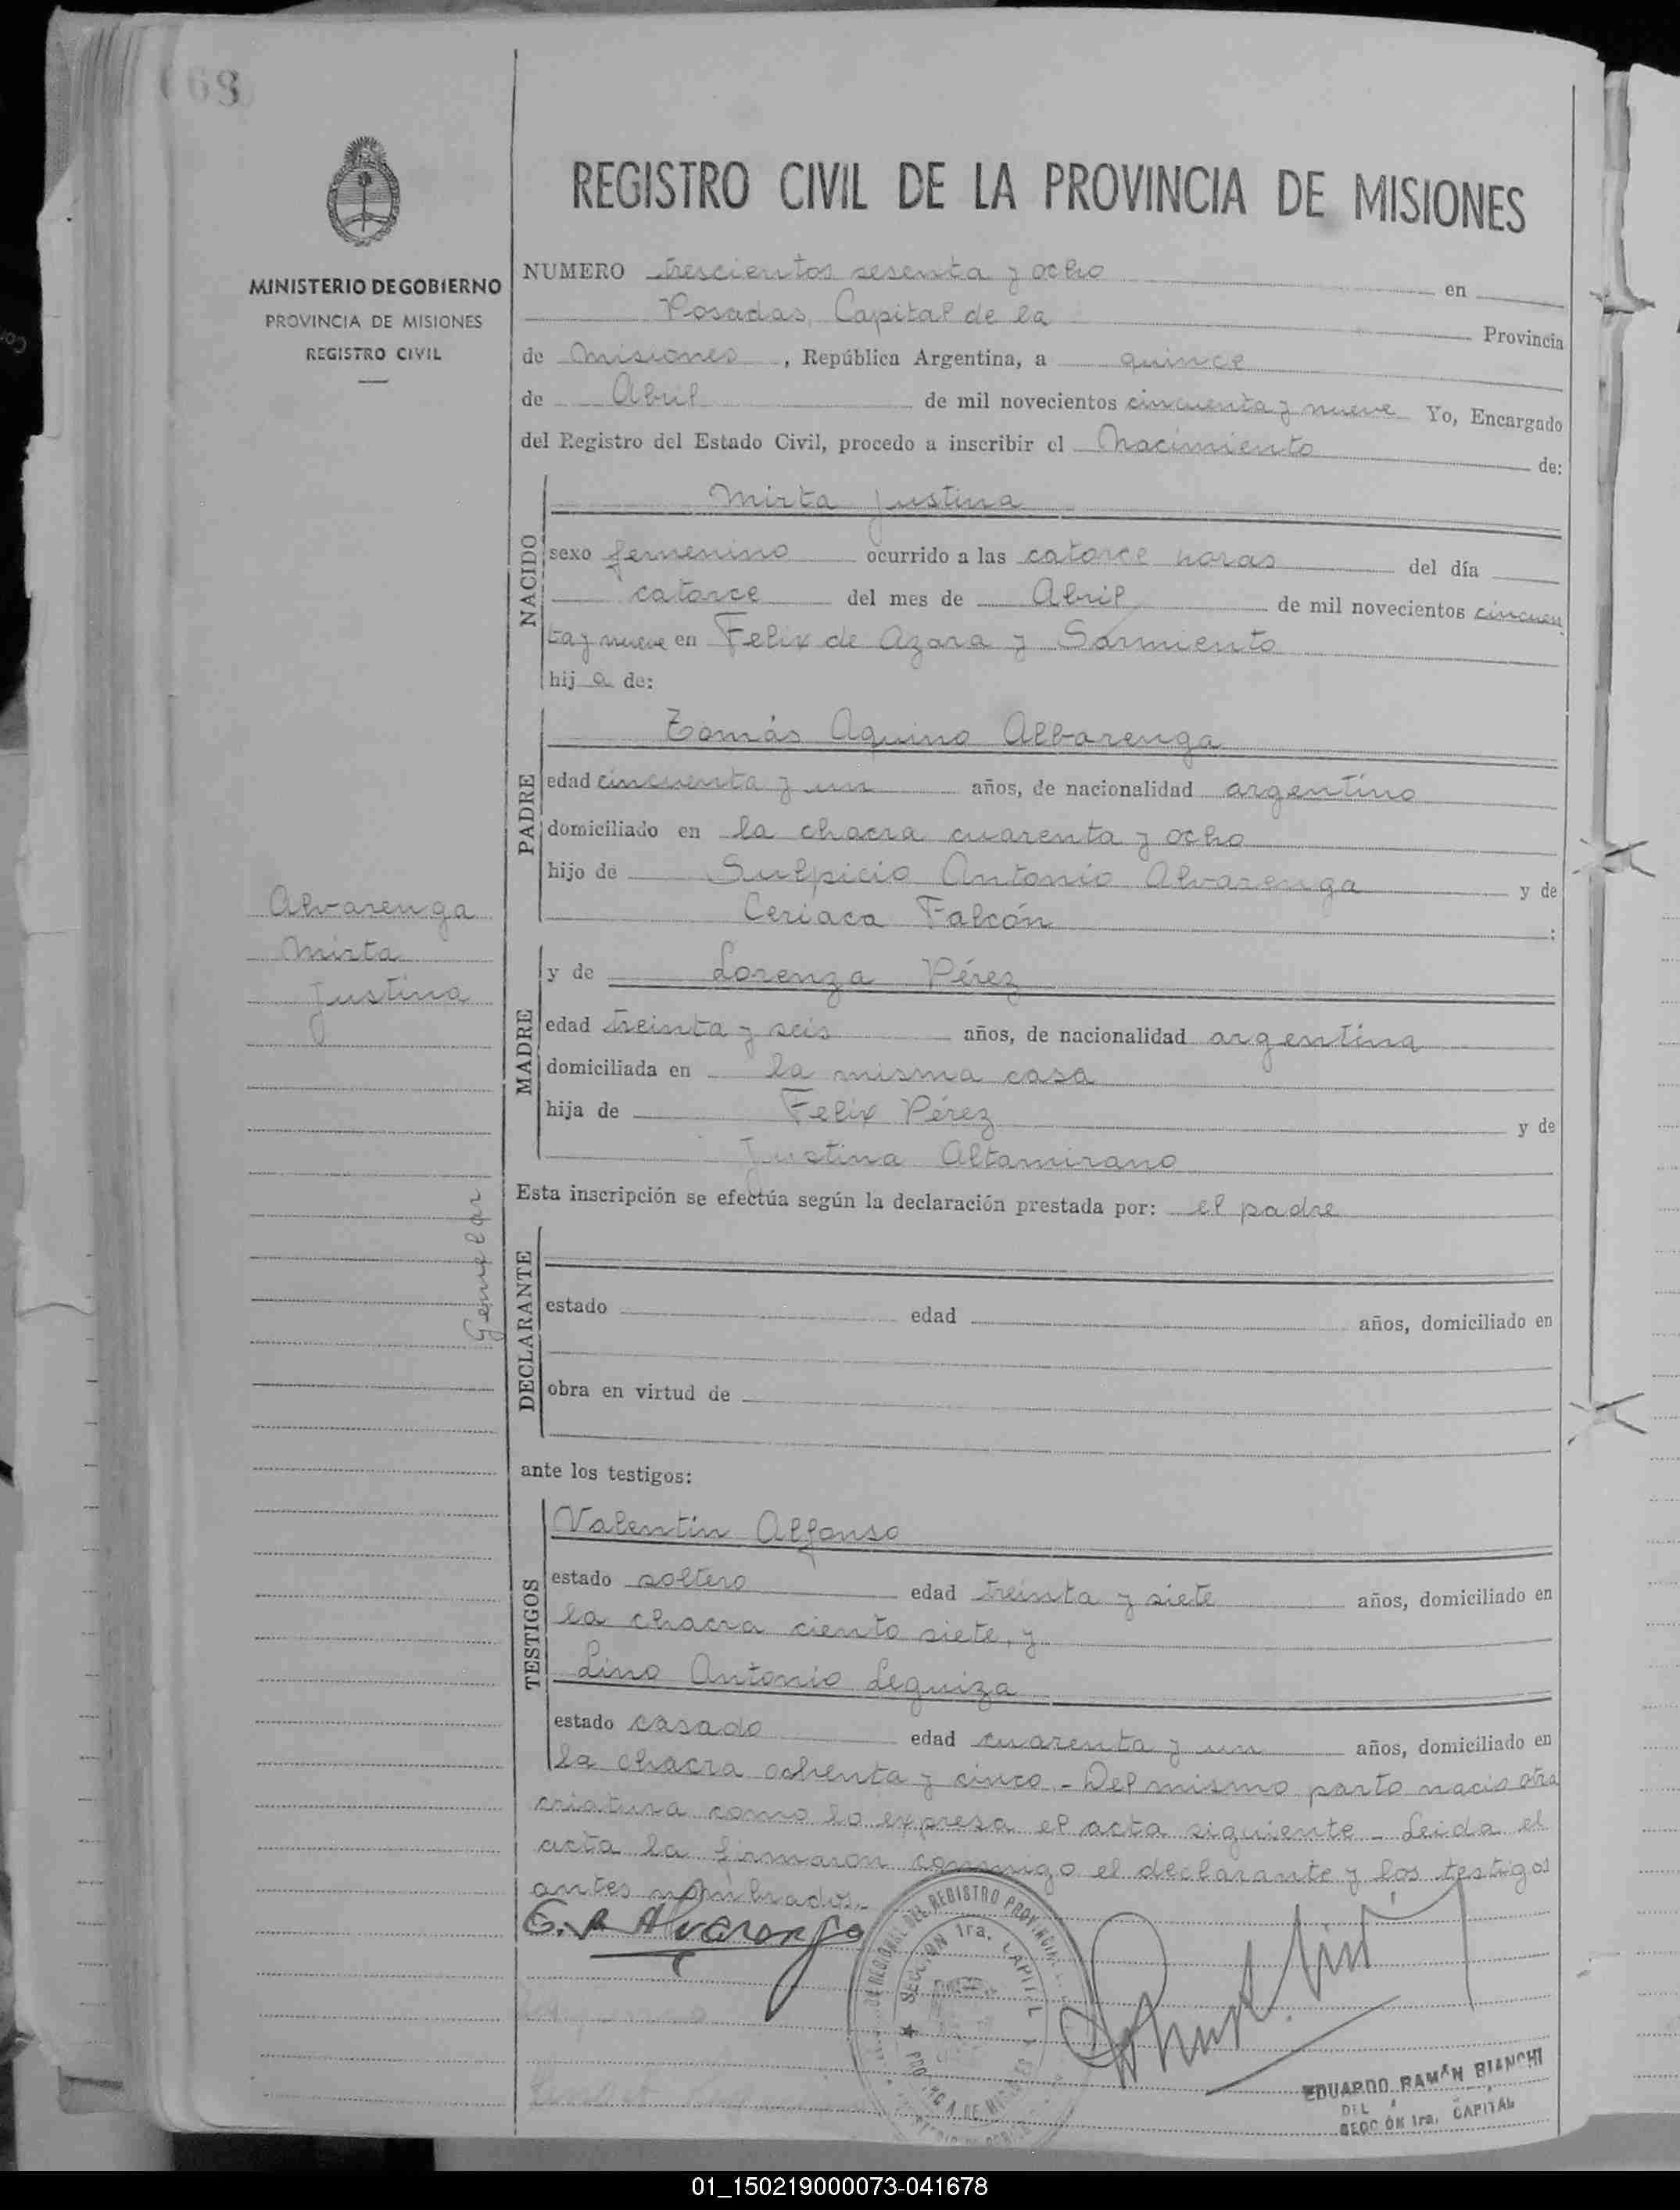 68
MINISTERIO DE GOBIERNO
PROVINCIA DE MISIONES
REGISTRO CIVIL
REGISTRO CIVIL DE LA PROVINCIA DE MISIONES
NUMERO trescientos sesenta y ocho en
Posadas, Capital de la Provincia
de Misiones, República Argentina, a quince
de Abril de mil novecientos cincuenta y nueve Yo, Encargado
del Registro del Estado Civil, procedo a inscribir el Nacimiento de:
NACIDO
Mirta Justina
sexo femenino ocurrido a las catorce horas del día
catorce del mes de Abril de mil novecientos cincuen
ta y nueve en Felix de Azara y Sarmiento
hij a de:
PADRE
Tomás Aquino Albarenga
edad cincuenta y un años, de nacionalidad argentino
domiciliado en la chacra cuarenta y ocho
hijo de Sulpicio Antonio Alvarenga y de
Ceriaca Falcón :
Alvarenga
Mirta
Justina
MADRE
y de Lorenza Pérez
edad treinta y seis años, de nacionalidad argentina
domiciliada en la misma casa
hija de Felix Pérez y de
Justina Altamirano
Esta inscripción se efectúa según la declaración prestada por: el padre
Gemelar
DECLARANTE
estado edad años, domiciliado en
obra en virtud de
ante los testigos:
TESTIGOS
Valentín Alfonso
estado soltero edad treinta y siete años, domiciliado en
la chacra ciento siete, y
Lino Antonio Leguiza
estado casado edad cuarenta y un años, domiciliado en
la chacra ochenta y cinco - Del mismo parto nació otra
criatura como lo expresa el acta siguiente - Leida el
acta la firmaron conmigo el declarante y los testigos
antes nombrados.-
Alvarenga
REGIONAL DEL REGISTRO PROVINCIAL
SECCION 1ra. CAPITAL
PROVINCIA DE MISIONES
EDUARDO RAMÓN BIANCHI
DEL
SECCIÓN 1ra. CAPITAL
01_150219000073-041678